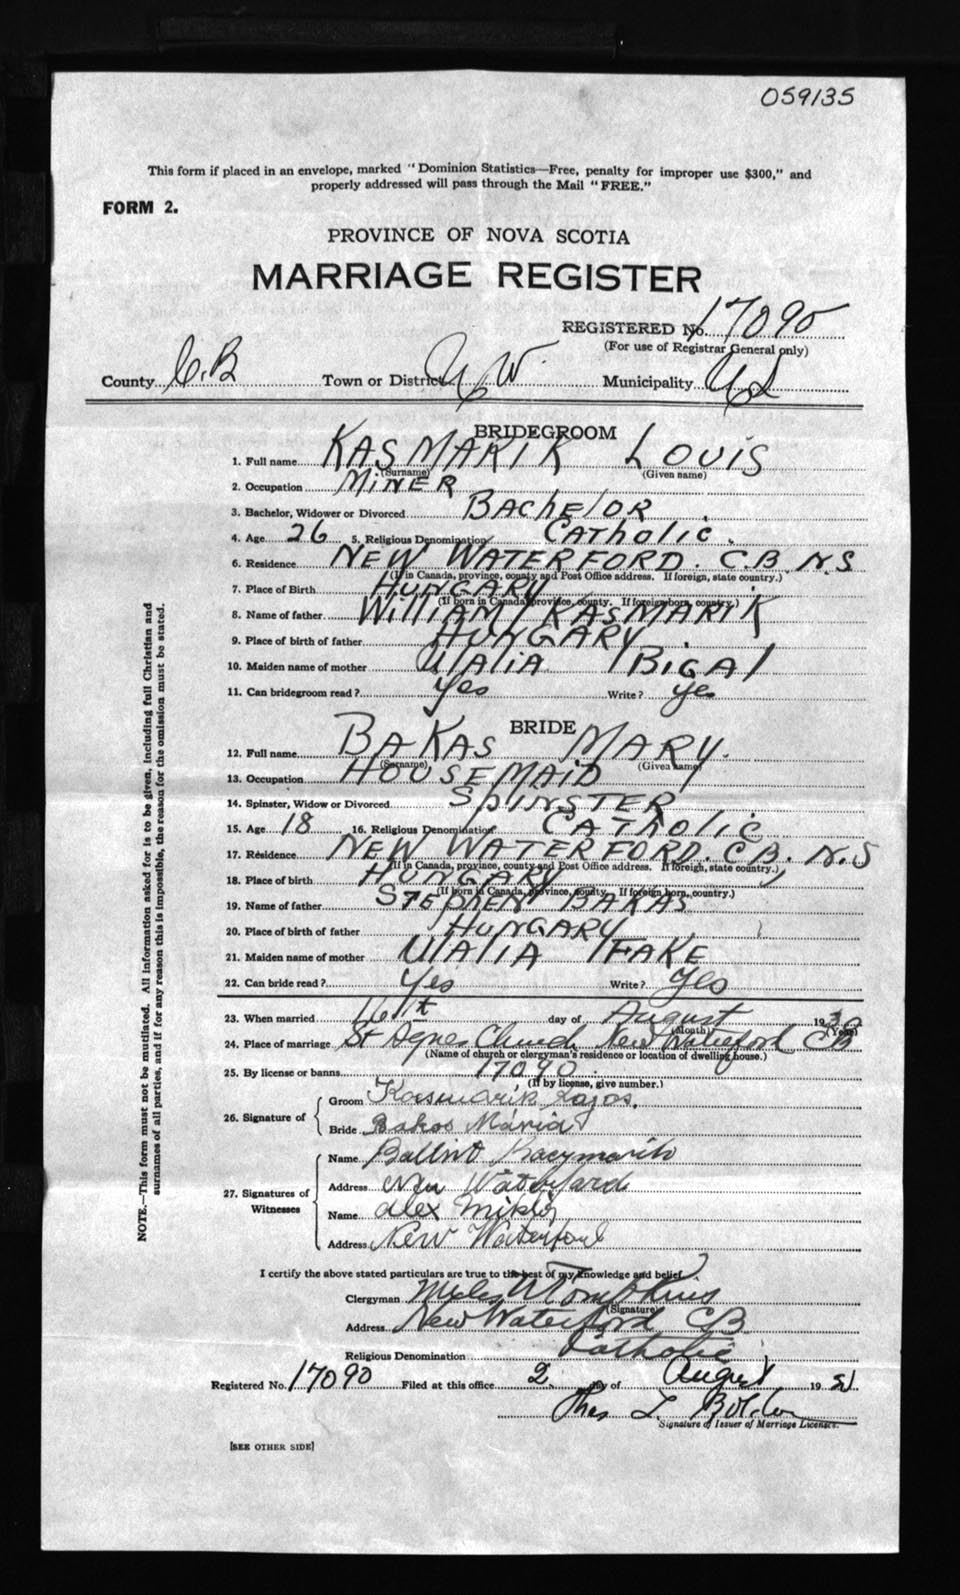 059135
This form if placed in an envelope, marked "Dominion Statistics—Free, penalty for improper use $300," and
properly addressed will pass through the Mail "FREE."
FORM 2.
PROVINCE OF NOVA SCOTIA
MARRIAGE REGISTER
REGISTERED No. 17090
(For use of Registrar General only)
County C.B Town or District N W. Municipality
BRIDEGROOM
1. Full name KASMARIK LOUIS
(Surname) (Given name)
2. Occupation MINER
3. Bachelor, Widower or Divorced BACHELOR
4. Age 26 5. Religious Denomination CATHOLIC.
6. Residence NEW WATERFORD. C.B. N.S
(If in Canada, province, county and Post Office address. If foreign, state country.)
7. Place of Birth HUNGARY
(If born in Canada, province, county. If foreign born, country.)
8. Name of father WILLIAM KASMARIK
9. Place of birth of father HUNGARY
10. Maiden name of mother ULALIA BIGAL
11. Can bridegroom read? Yes Write? Yes
BRIDE
12. Full name BAKAS MARY.
(Surname) (Given name)
13. Occupation HOUSEMAID
14. Spinster, Widow or Divorced SPINSTER
15. Age 18 16. Religious Denomination CATHOLIC
17. Residence NEW WATERFORD. C.B. N.S
(If in Canada, province, county and Post Office address. If foreign, state country.)
18. Place of birth HUNGARY
(If born in Canada, province, county. If foreign born, country.)
19. Name of father STEPHEN BAKAS
20. Place of birth of father HUNGARY
21. Maiden name of mother ULALIA FAKE
22. Can bride read? Yes Write? Yes
23. When married 16th day of August 1930
(Month) (Year)
24. Place of marriage St Agnes Church New Waterford CB
(Name of church or clergyman's residence or location of dwelling house.)
25. By license or banns 17090.
(If by license, give number.)
26. Signature of
Groom Kasmarik Lajos.
Bride Bakos Mária
27. Signatures of Witnesses
Name Ballint Kacymarik
Address New Waterford
Name Alex Miklos
Address New Waterford
I certify the above stated particulars are true to the best of my knowledge and belief.
Clergyman Myles N Tompkins
(Signature)
Address New Waterford CB
Religious Denomination Catholic
Registered No. 17090 Filed at this office 2. day of August 19
Thos L.
Signature of Issuer of Marriage Licenses.
[SEE OTHER SIDE]
NOTE.—This form must not be mutilated. All information asked for is to be given, including full Christian and
surnames of all parties, and if for any reason this is impossible, the reason for the omission must be stated.